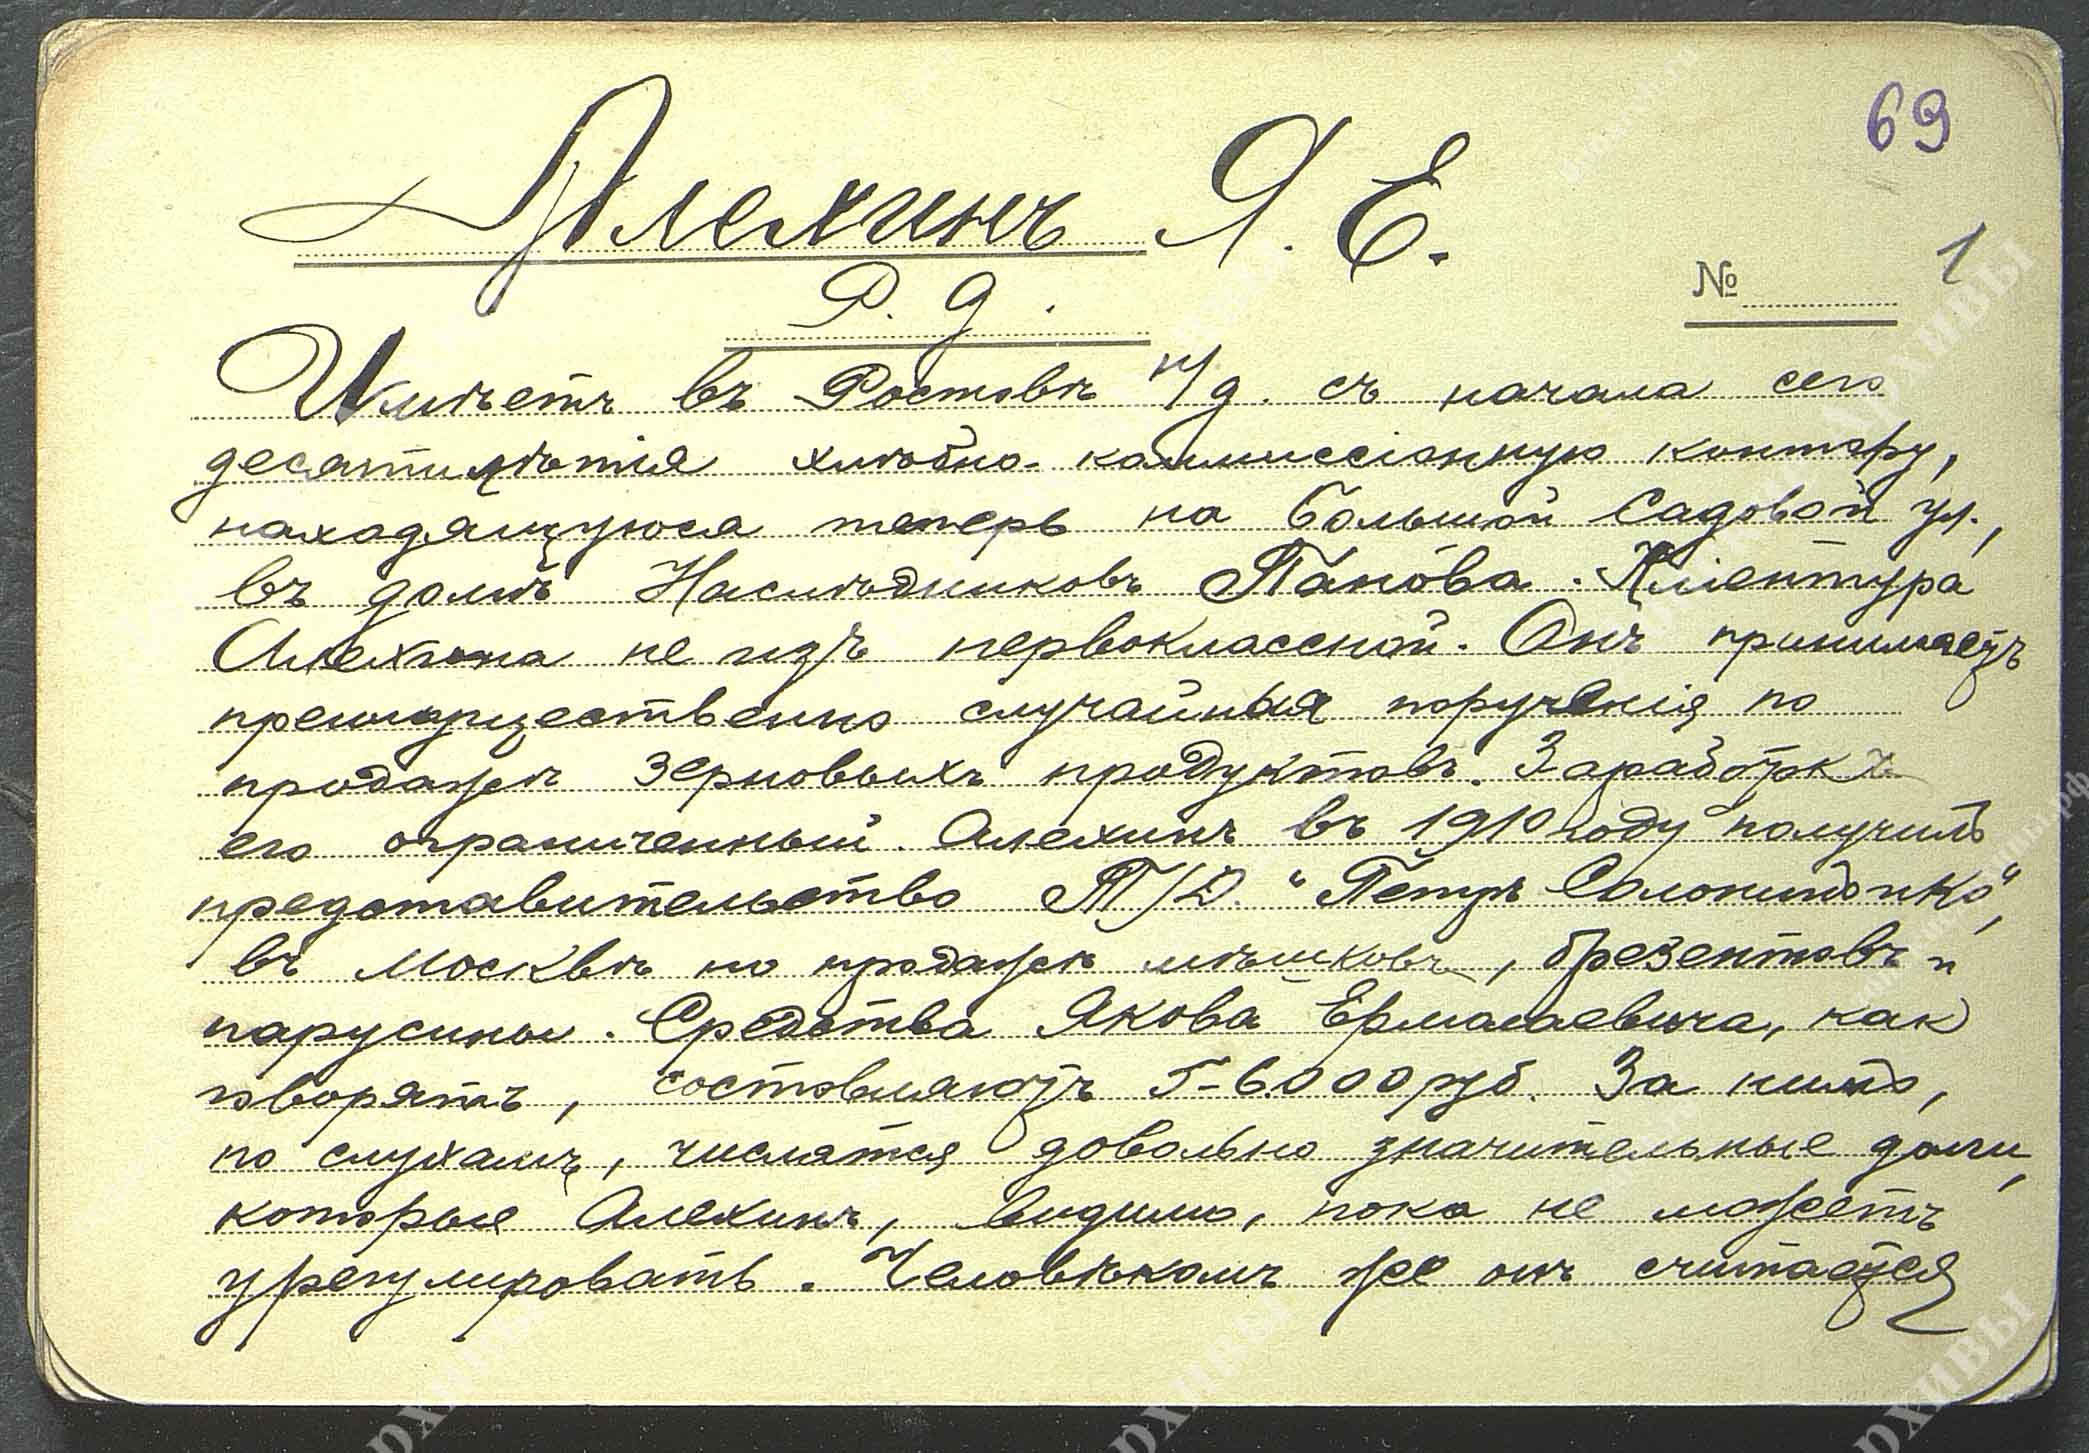 69
Алехинъ Я. Е.
1
№
Р. Д.
Имѣетъ въ Ростовѣ н/Д. съ начала сего
десятилѣтія хлѣбно-коммиссіонную контору,
находящуюся теперь на Большой Садовой ул.,
въ домѣ Наслѣдниковъ Панова. Кліентура
Алехина не изъ первоклассной. Онъ принимаетъ
преимущественно случайныя порученія по
продажѣ зерновыхъ продуктовъ. Заработокъ
его ограниченный. Алехинъ въ 1910 году получилъ
представительство Т/Д. "Петръ Солонитонко",
въ Москвѣ по продажѣ мѣшковъ, брезентовъ и
парусины. Средства Якова Ермолаевича, какъ
говорятъ, составляютъ 5-6.000 руб. За нимъ,
по слухамъ, числятся довольно значительные долги,
которые Алехинъ, видимо, пока не можетъ
урегулировать. Человѣкомъ же онъ считается